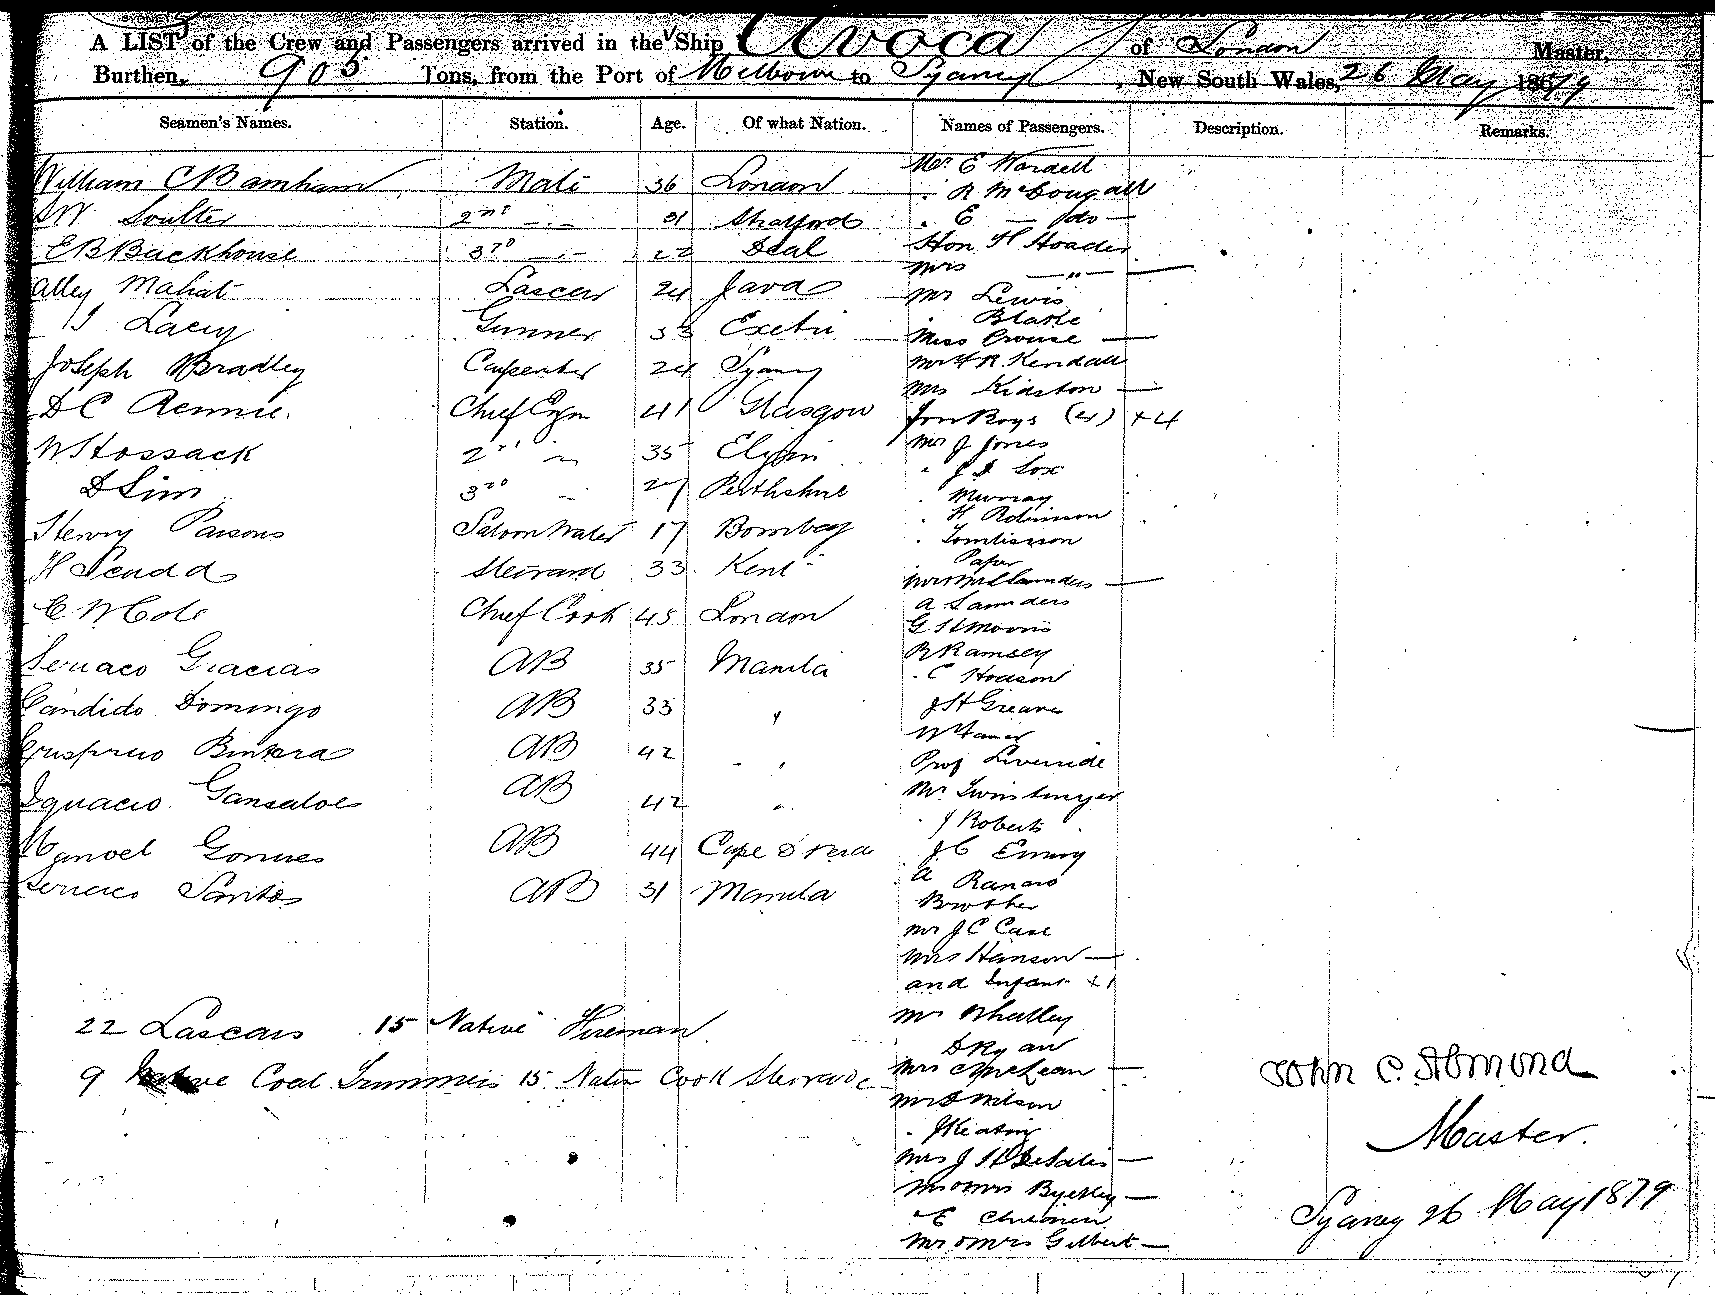 A LIST of the Crew and Passengers arrived in the Ship Avoca of London Master,
Burthen, 905 Tons, from the Port of Melbourne to Sydney, New South Wales, 26 May 1879
Seamen's Names. Station. Age. Of what Nation. Names of Passengers. Description. Remarks.
William C Barnham Mate 36 London
Soulter 2nd 31 Stratford
E B Backhouse 3rd 22 Deal
Alley Mahat Lascar 24 Java
Lacey Gunner 33 Exeter
Joseph Bradley Carpenter 24 Sydney
D C Rennie. Chief Egn 41 Glasgow
W Hossack 2nd 35 Elgin
D Sim 3rd 27 Perthshire
Henry Parsons Saloon Waiter 17 Bombay
H Scudd Steward 33 Kent
C W Cole Chief Cook 45 London
Gracias AB 35 Manila
Candido Domingo AB 33 "
AB 42 "
Ignacio Gansaloe AB 42 "
Manoel Gomes AB 44 Cape d Verd
Santos AB 31 Manila
22 Lascars 15 Native Fireman
9 Native Coal Trimmers 15 Native Cook Stewards
Mr E Wardell
" R McDougall
" E — do —
Hon H Hoader
Mrs — " —
Mr Lewis
Blake
Miss Crouse —
Mr R. Kendall
Mrs Kidston —
Four Boys (4) +4
Mr J Jones
Cox
" Murray
" H Robinson
" Tomlinson
Paper
Saunders —
A Saunders
G H Morris
R Ramsey
C Hodson
J H Greaves
Prof Liverside
Mr
" J Roberts
J C Emery
A
Brother
Mr J C Case
Mrs Hanson —
and Infant +1
Mr Whalley
D Ryan
Mrs McLean —
Mr D Wilson
" J Keating
Mrs J H DeSalis —
Mr & Mrs —
E
Mr & Mrs Gilbert —
John C. Almond
Master.
Sydney 26 May 1879